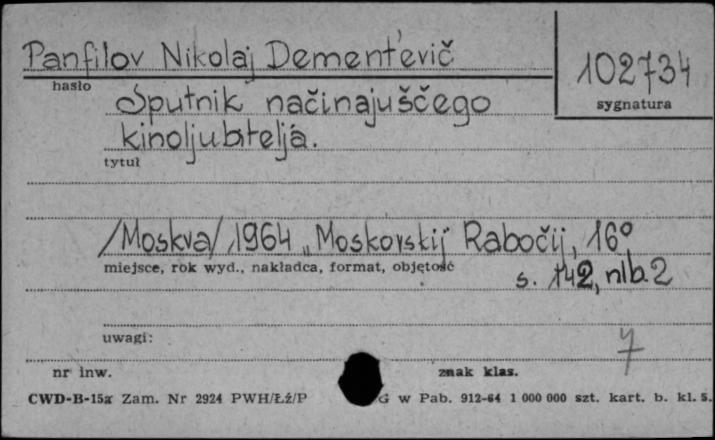 Panfilov Nikolaj Dement'evič
102734
hasło
sygnatura
Sputnik načinajuščego
kinoljubitelja.
tytuł
/Moskva/ 1964 „Moskovskij Rabočij, 16°
miejsce, rok wyd., nakładca, format, objętość
s. 142, nlb. 2
uwagi:
7
nr inw.
znak klas.
CWD-B-15a Zam. Nr 2924 PWH/Łź/P G w Pab. 912-64 1 000 000 szt. kart. b. kl. 5.